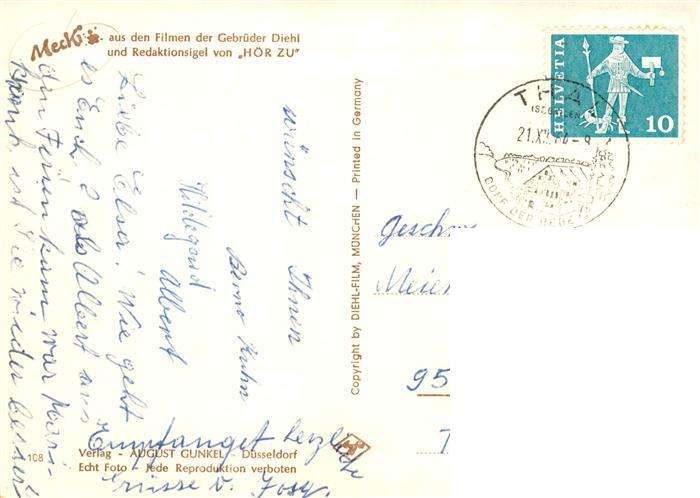 Mecki
aus den Filmen der Gebrüder Diehl
und Redaktionsigel von „HÖR ZU"
wünscht Ihnen
Benno Kuhn
Hildegard
Albert
Liebe Elsa! Wie geht
es Euch? Als Albert aus
den Ferien kam, war Mari-
krank, ist Sie wieder besser
Empfanget herzliche
Grüsse v. Josy.
108
Verlag - AUGUST GUNKEL - Düsseldorf
Echt Foto - Jede Reproduktion verboten
Copyright by DIEHL-FILM, MÜNCHEN — Printed in Germany
HELVETIA
10
THA
21.X
DORF DER REBE
Gesch
Meie
95